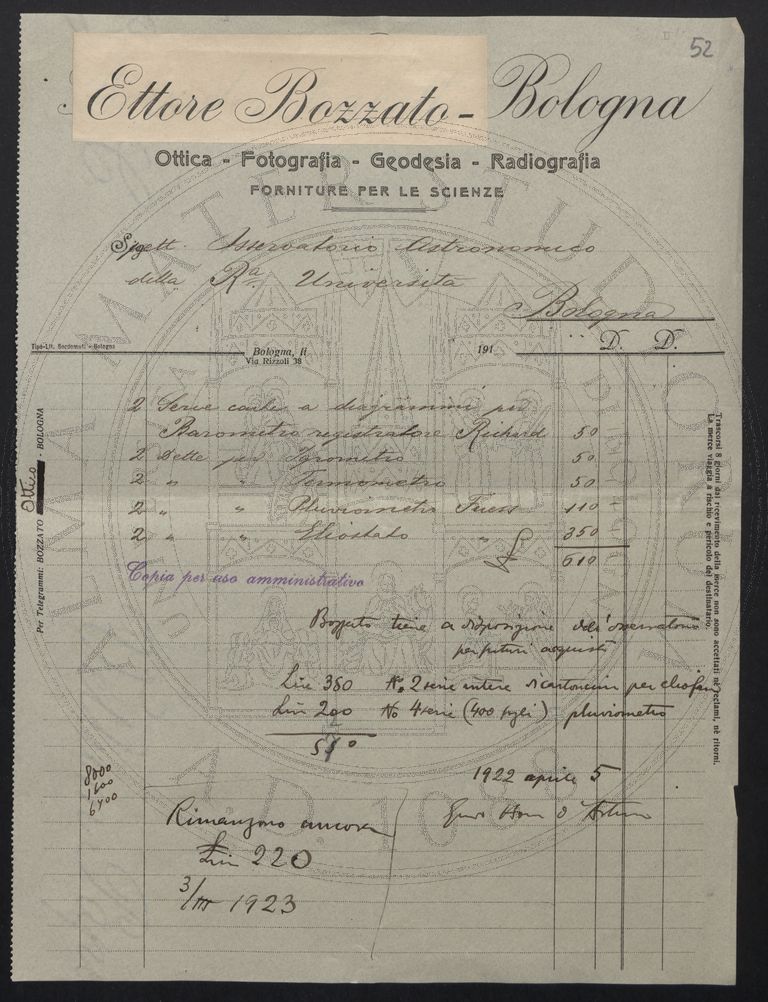 52
Ettore Bozzato - Bologna
Ottica - Fotografia - Geodesia - Radiografia
FORNITURE PER LE SCIENZE
Spett. Osservatorio Astronomico
della Ra. Università
Bologna
D. D.
Tipo-Lit. Bordemati - Bologna
Bologna, li 191
Via Rizzoli 38
2 Serie carte a diagrammi per
Barometro registratore Richard 50
2 Dette per Igrometro 50
2 " " Termometro 50
2 " " Pluviometro Fuess 110
2 " " Eliostato " £ 350
610
Copia per uso amministrativo
Per Telegrammi: BOZZATO Ottico - BOLOGNA
Trascorsi 8 giorni dal ricevimento della merce non sono accettati nè reclami, nè ritorni.
La merce viaggia a rischio e pericolo del destinatario.
Bozzato tiene a disposizione dell'osservatorio
per futuri acquisti
Lire 350 No 2 serie intere di cartoncini per eliofan
Lire 200 No 4 serie (400 fogli) pluviometro
1922 aprile 5
8000
1600
6400
Rimangono ancora
Lire 220
3/III 1923
ALMA MATER STUDIORUM
A.D. 1088